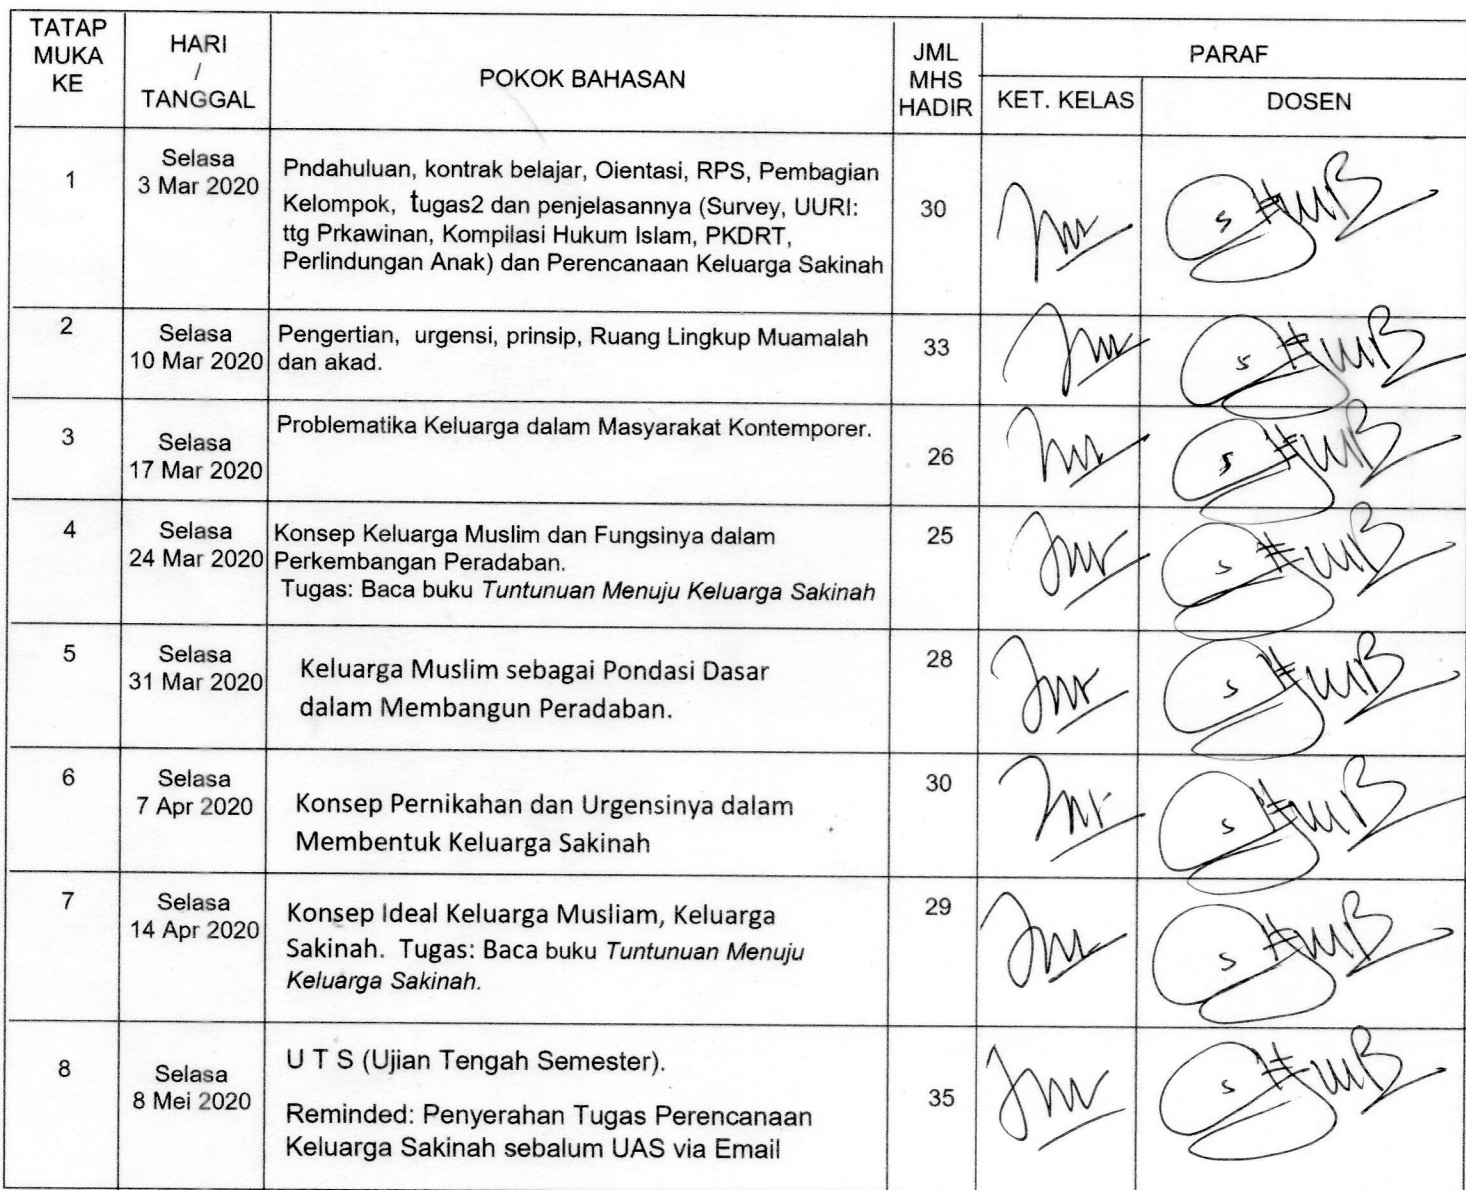 TATAP
MUKA
KE
HARI
/
TANGGAL
POKOK BAHASAN
JML
MHS
HADIR
PARAF
KET. KELAS
DOSEN
1
Selasa
3 Mar 2020
Pndahuluan, kontrak belajar, Oientasi, RPS, Pembagian
Kelompok, tugas2 dan penjelasannya (Survey, UURI:
ttg Prkawinan, Kompilasi Hukum Islam, PKDRT,
Perlindungan Anak) dan Perencanaan Keluarga Sakinah
30
2
Selasa
10 Mar 2020
Pengertian, urgensi, prinsip, Ruang Lingkup Muamalah
dan akad.
33
3
Selasa
17 Mar 2020
Problematika Keluarga dalam Masyarakat Kontemporer.
26
4
Selasa
24 Mar 2020
Konsep Keluarga Muslim dan Fungsinya dalam
Perkembangan Peradaban.
Tugas: Baca buku Tuntunuan Menuju Keluarga Sakinah
25
5
Selasa
31 Mar 2020
Keluarga Muslim sebagai Pondasi Dasar
dalam Membangun Peradaban.
28
6
Selasa
7 Apr 2020
Konsep Pernikahan dan Urgensinya dalam
Membentuk Keluarga Sakinah
30
7
Selasa
14 Apr 2020
Konsep Ideal Keluarga Musliam, Keluarga
Sakinah. Tugas: Baca buku Tuntunuan Menuju
Keluarga Sakinah.
29
8
Selasa
8 Mei 2020
U T S (Ujian Tengah Semester).
Reminded: Penyerahan Tugas Perencanaan
Keluarga Sakinah sebalum UAS via Email
35